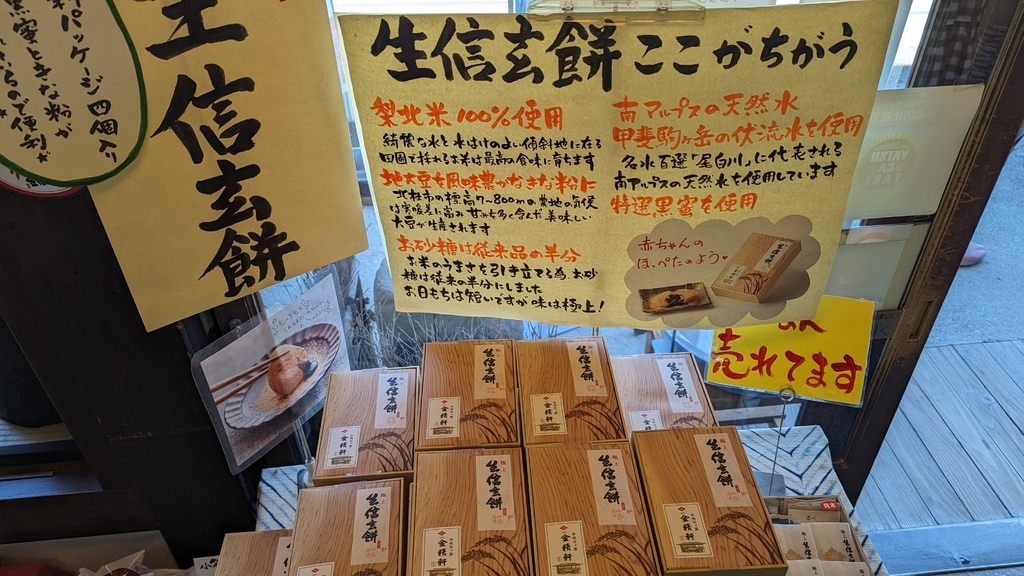 料パッケージ 四個入り
黒蜜ときな粉が
いるので便利♪
生信玄餅
生信玄餅 ここがちがう
梨北米100%使用
綺麗な水と水はけのよい傾斜地に在る
田圃で採れるお米は最高の食味に育ちます
地大豆を風味豊かなきな粉に
北杜市の標高7~800mの農地の気候
は寒暖差に富み甘みを多く含んだ美味しい
大豆が生産されます
お砂糖は従来品の半分
お米のうまさを引き立てる為お砂
糖は従来の半分にしました
お日もちは短いですが味は極上!
南アルプスの天然水
甲斐駒ヶ岳の伏流水を使用
名水百選「尾白川」に代表される
南アルプスの天然水を使用しています
特選黒蜜を使用
赤ちゃんの
ほっぺたのよう♥
売れてます
生信玄餅
金精軒
生信玄餅
金精軒
生信玄餅
金精軒
生信玄餅
生信玄餅
生信玄餅
金精軒
生信玄餅
金精軒
生信玄餅
金精軒